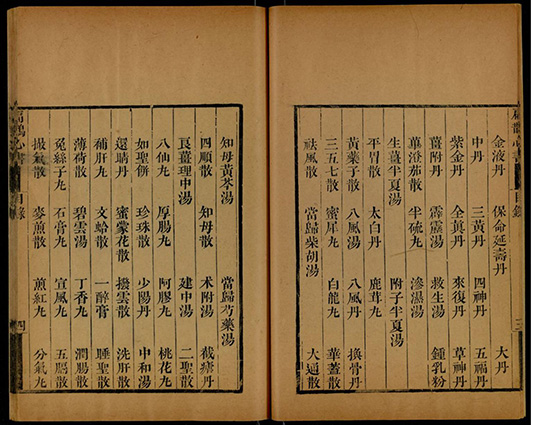 扁鵲心書 目錄 三
金液丹 保命延壽丹 大丹
中丹 三黃丹 四神丹 五福丹
紫金丹 全真丹 來復丹 草神丹
薑附丹 霹靂湯 救生湯 鍾乳粉
蓽澄茄散 半硫丸 滲濕湯
生薑半夏湯 附子半夏湯
平胃散 太白丹 鹿茸丸
黃藥子散 八風湯 八風丹 換骨丹
三五七散 蜜犀丸 白龍丸 華蓋散
祛風散 當歸柴胡湯 大通散
知母黃芩湯 當歸芍藥湯
四順散 知母散 朮附湯 截瘧丹
艮薑理中湯 建中湯 二聖散
八仙丸 厚腸丸 阿膠丸 桃花丸
如聖餅 珍珠散 少陽丹 中和湯
還睛丹 蜜蒙花散 撥雲散 洗肝散
補肝丸 文蛤散 一醉膏 睡聖散
薄荷散 碧雲湯 丁香丸 潤腸散
菟絲子丸 石膏丸 宣風丸 五膈散
撮氣散 麥煎散 煎紅丸 分氣丸
扁鵲心書 目錄 四